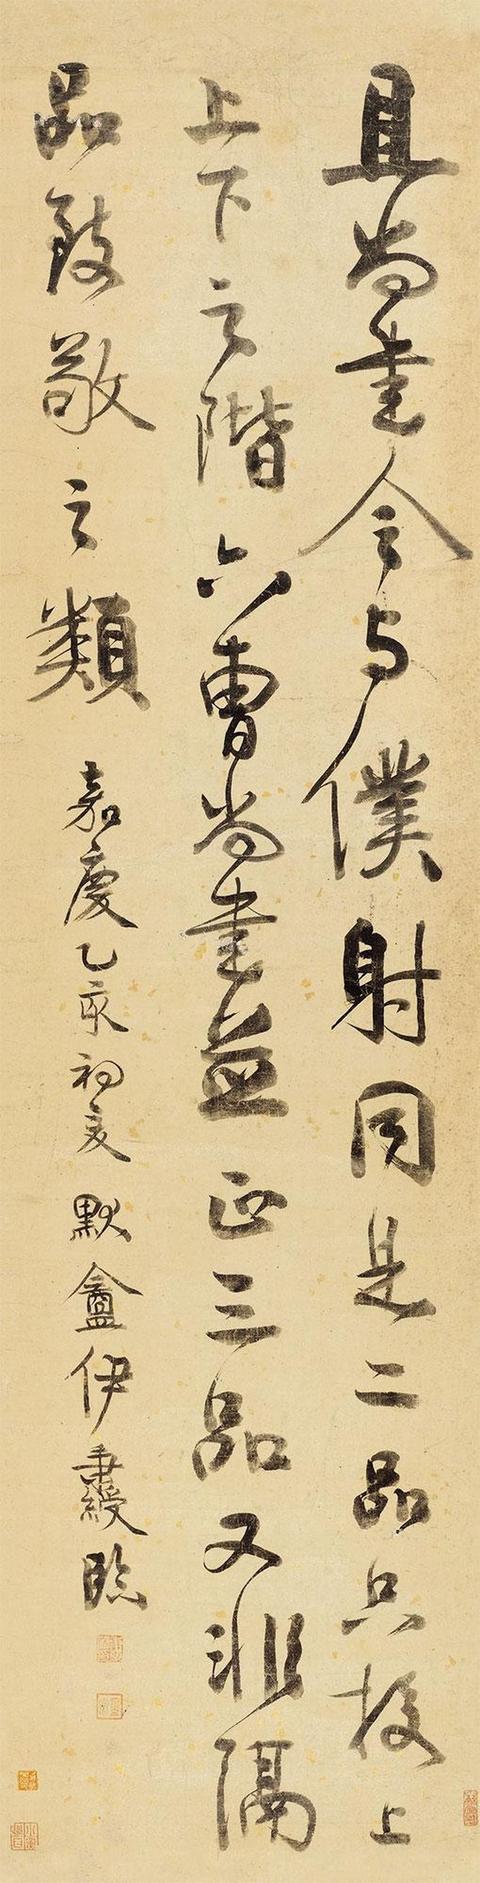 且尚書令与僕射同是二品只校上
上下之階六曹尚書並正三品又非隔
品致敬之類
嘉慶乙亥初夏默盦伊秉綬臨